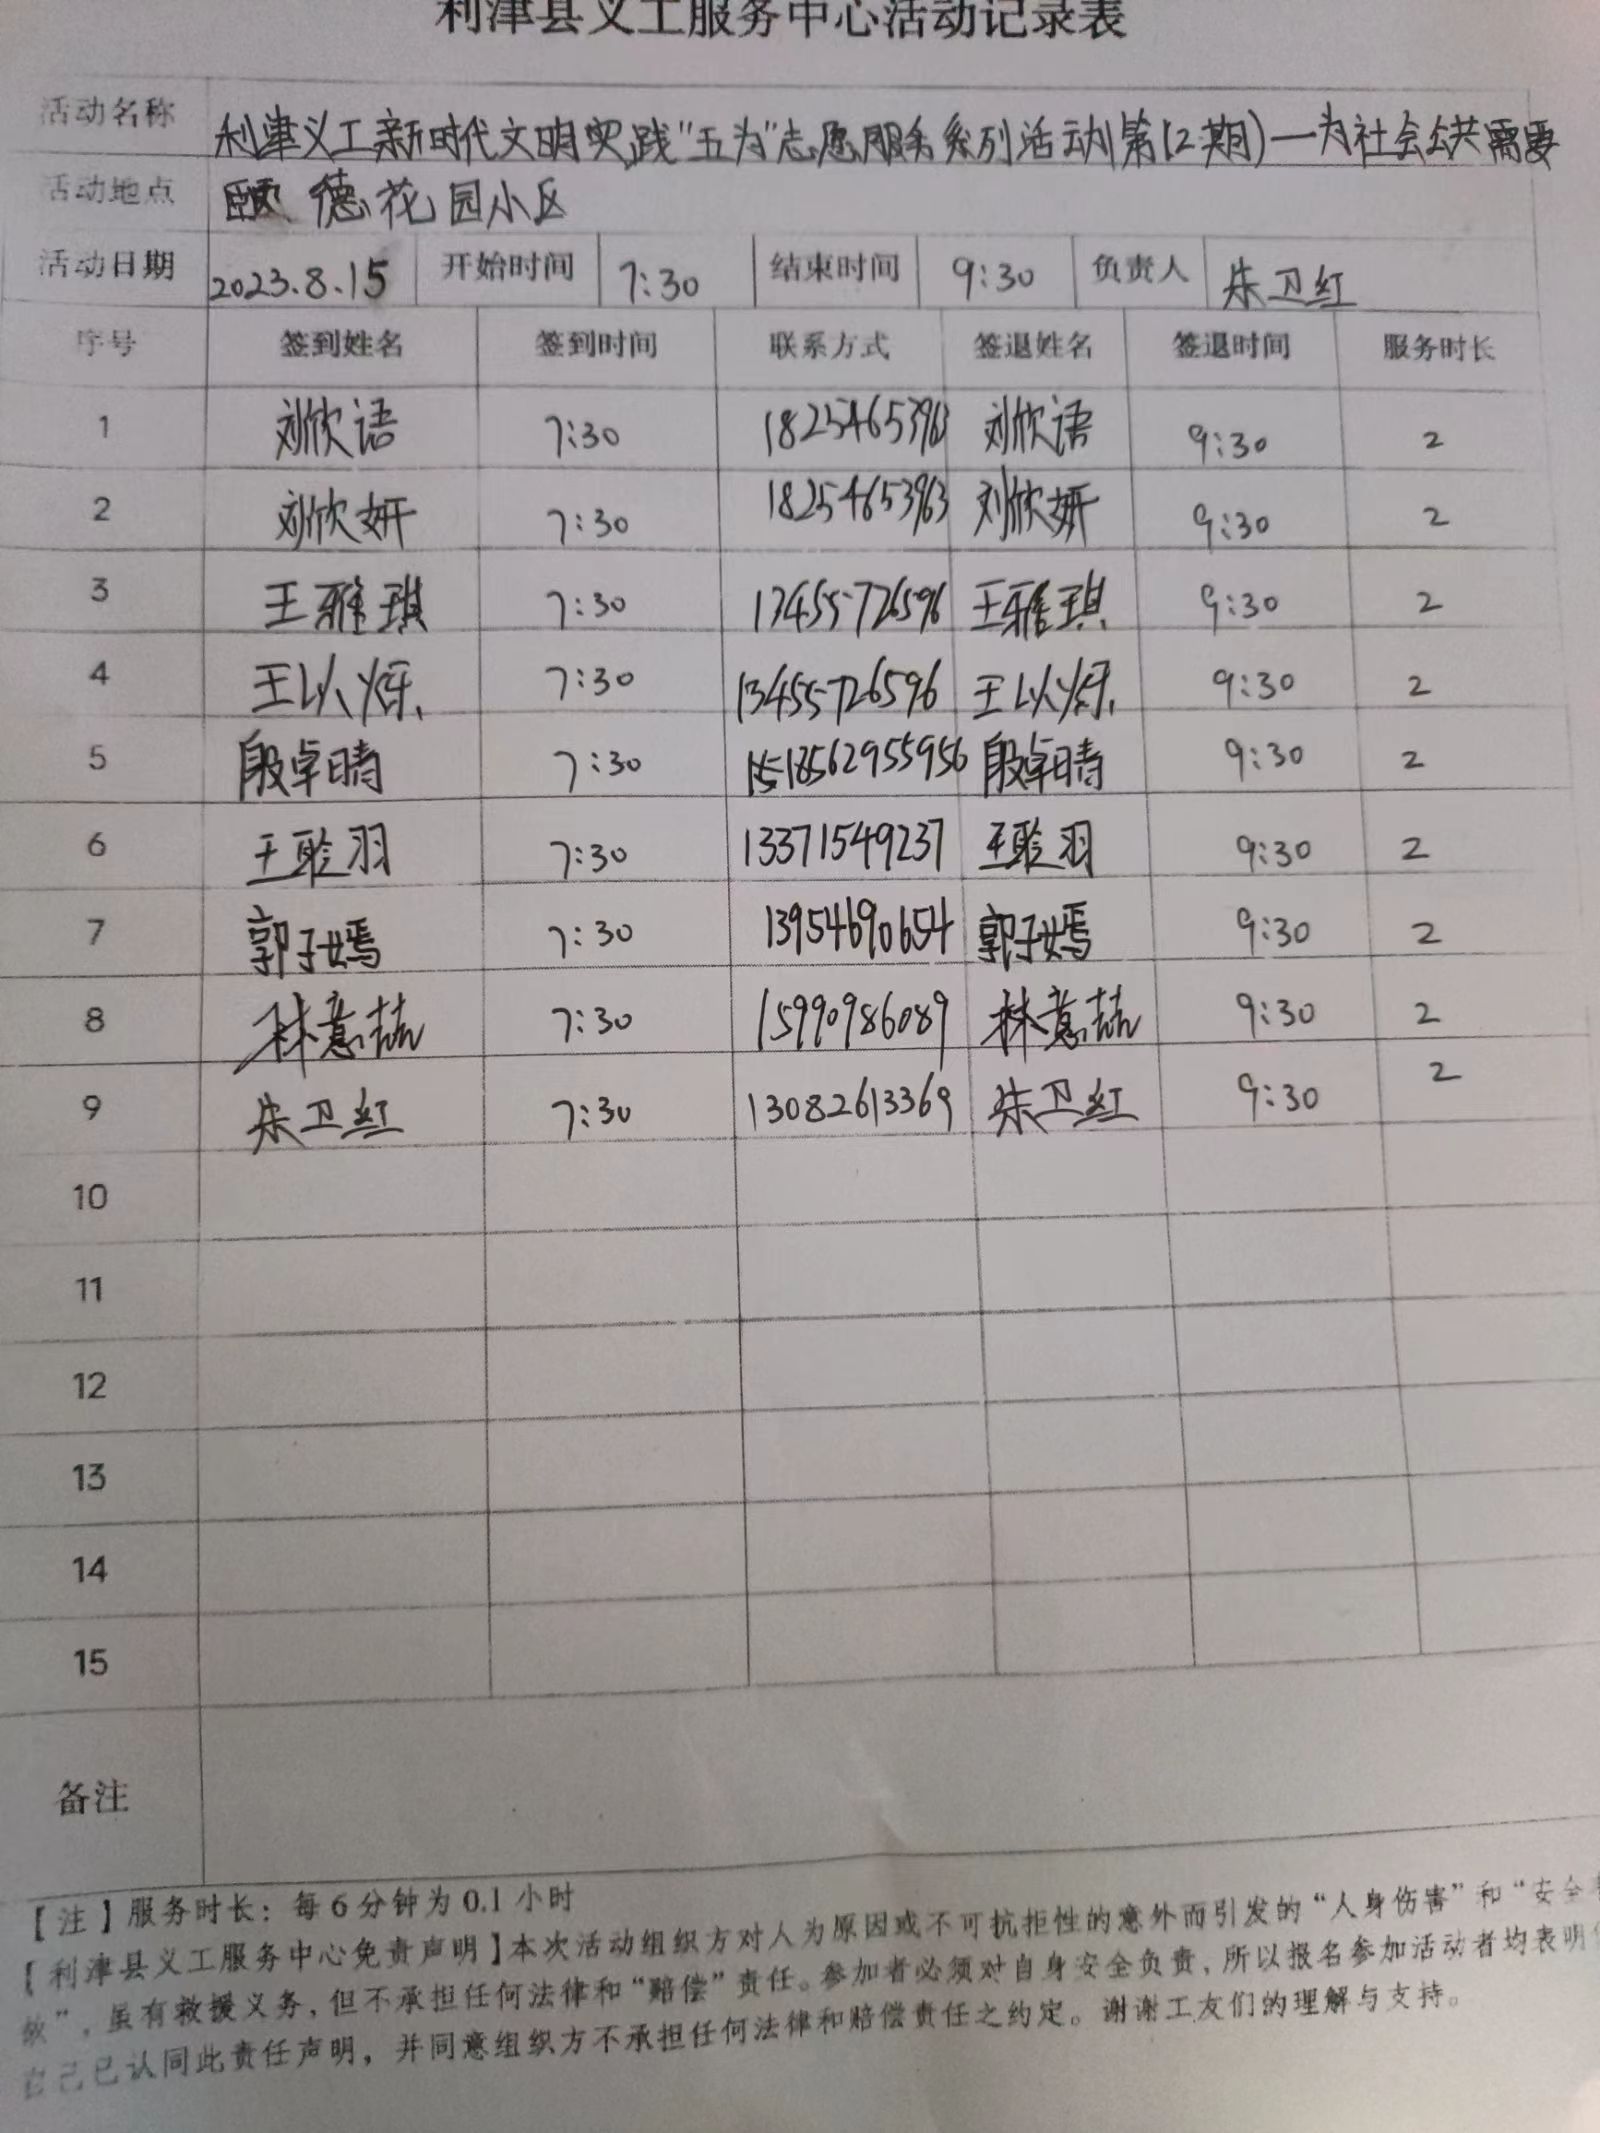 利津县义工服务中心活动记录表
活动名称 利津义工新时代文明实践"五为"志愿服务系列活动(第12期)—为社会公共需要
活动地点 颐德花园小区
活动日期 2023.8.15 开始时间 7:30 结束时间 9:30 负责人 朱卫红
序号 签到姓名 签到时间 联系方式 签退姓名 签退时间 服务时长
1 刘欣语 7:30 18254653963 刘欣语 9:30 2
2 刘欣妍 7:30 18254653963 刘欣妍 9:30 2
3 王雅琪 7:30 13455726596 王雅琪 9:30 2
4 王以烁 7:30 13455726596 王以烁 9:30 2
5 段卓晴 7:30 18562955956 段卓晴 9:30 2
6 王聆羽 7:30 13371549237 王聆羽 9:30 2
7 郭子嫣 7:30 13954690654 郭子嫣 9:30 2
8 林意喆 7:30 15990986089 林意喆 9:30 2
9 朱卫红 7:30 13082613369 朱卫红 9:30 2
10
11
12
13
14
15
备注
【注】服务时长：每6分钟为0.1小时
【利津县义工服务中心免责声明】本次活动组织方对人为原因或不可抗拒性的意外而引发的“人身伤害”和“安全
故”，虽有救援义务，但不承担任何法律和“赔偿”责任。参加者必须对自身安全负责，所以报名参加活动者均表明
自己已认同此责任声明，并同意组织方不承担任何法律和赔偿责任之约定。谢谢工友们的理解与支持。